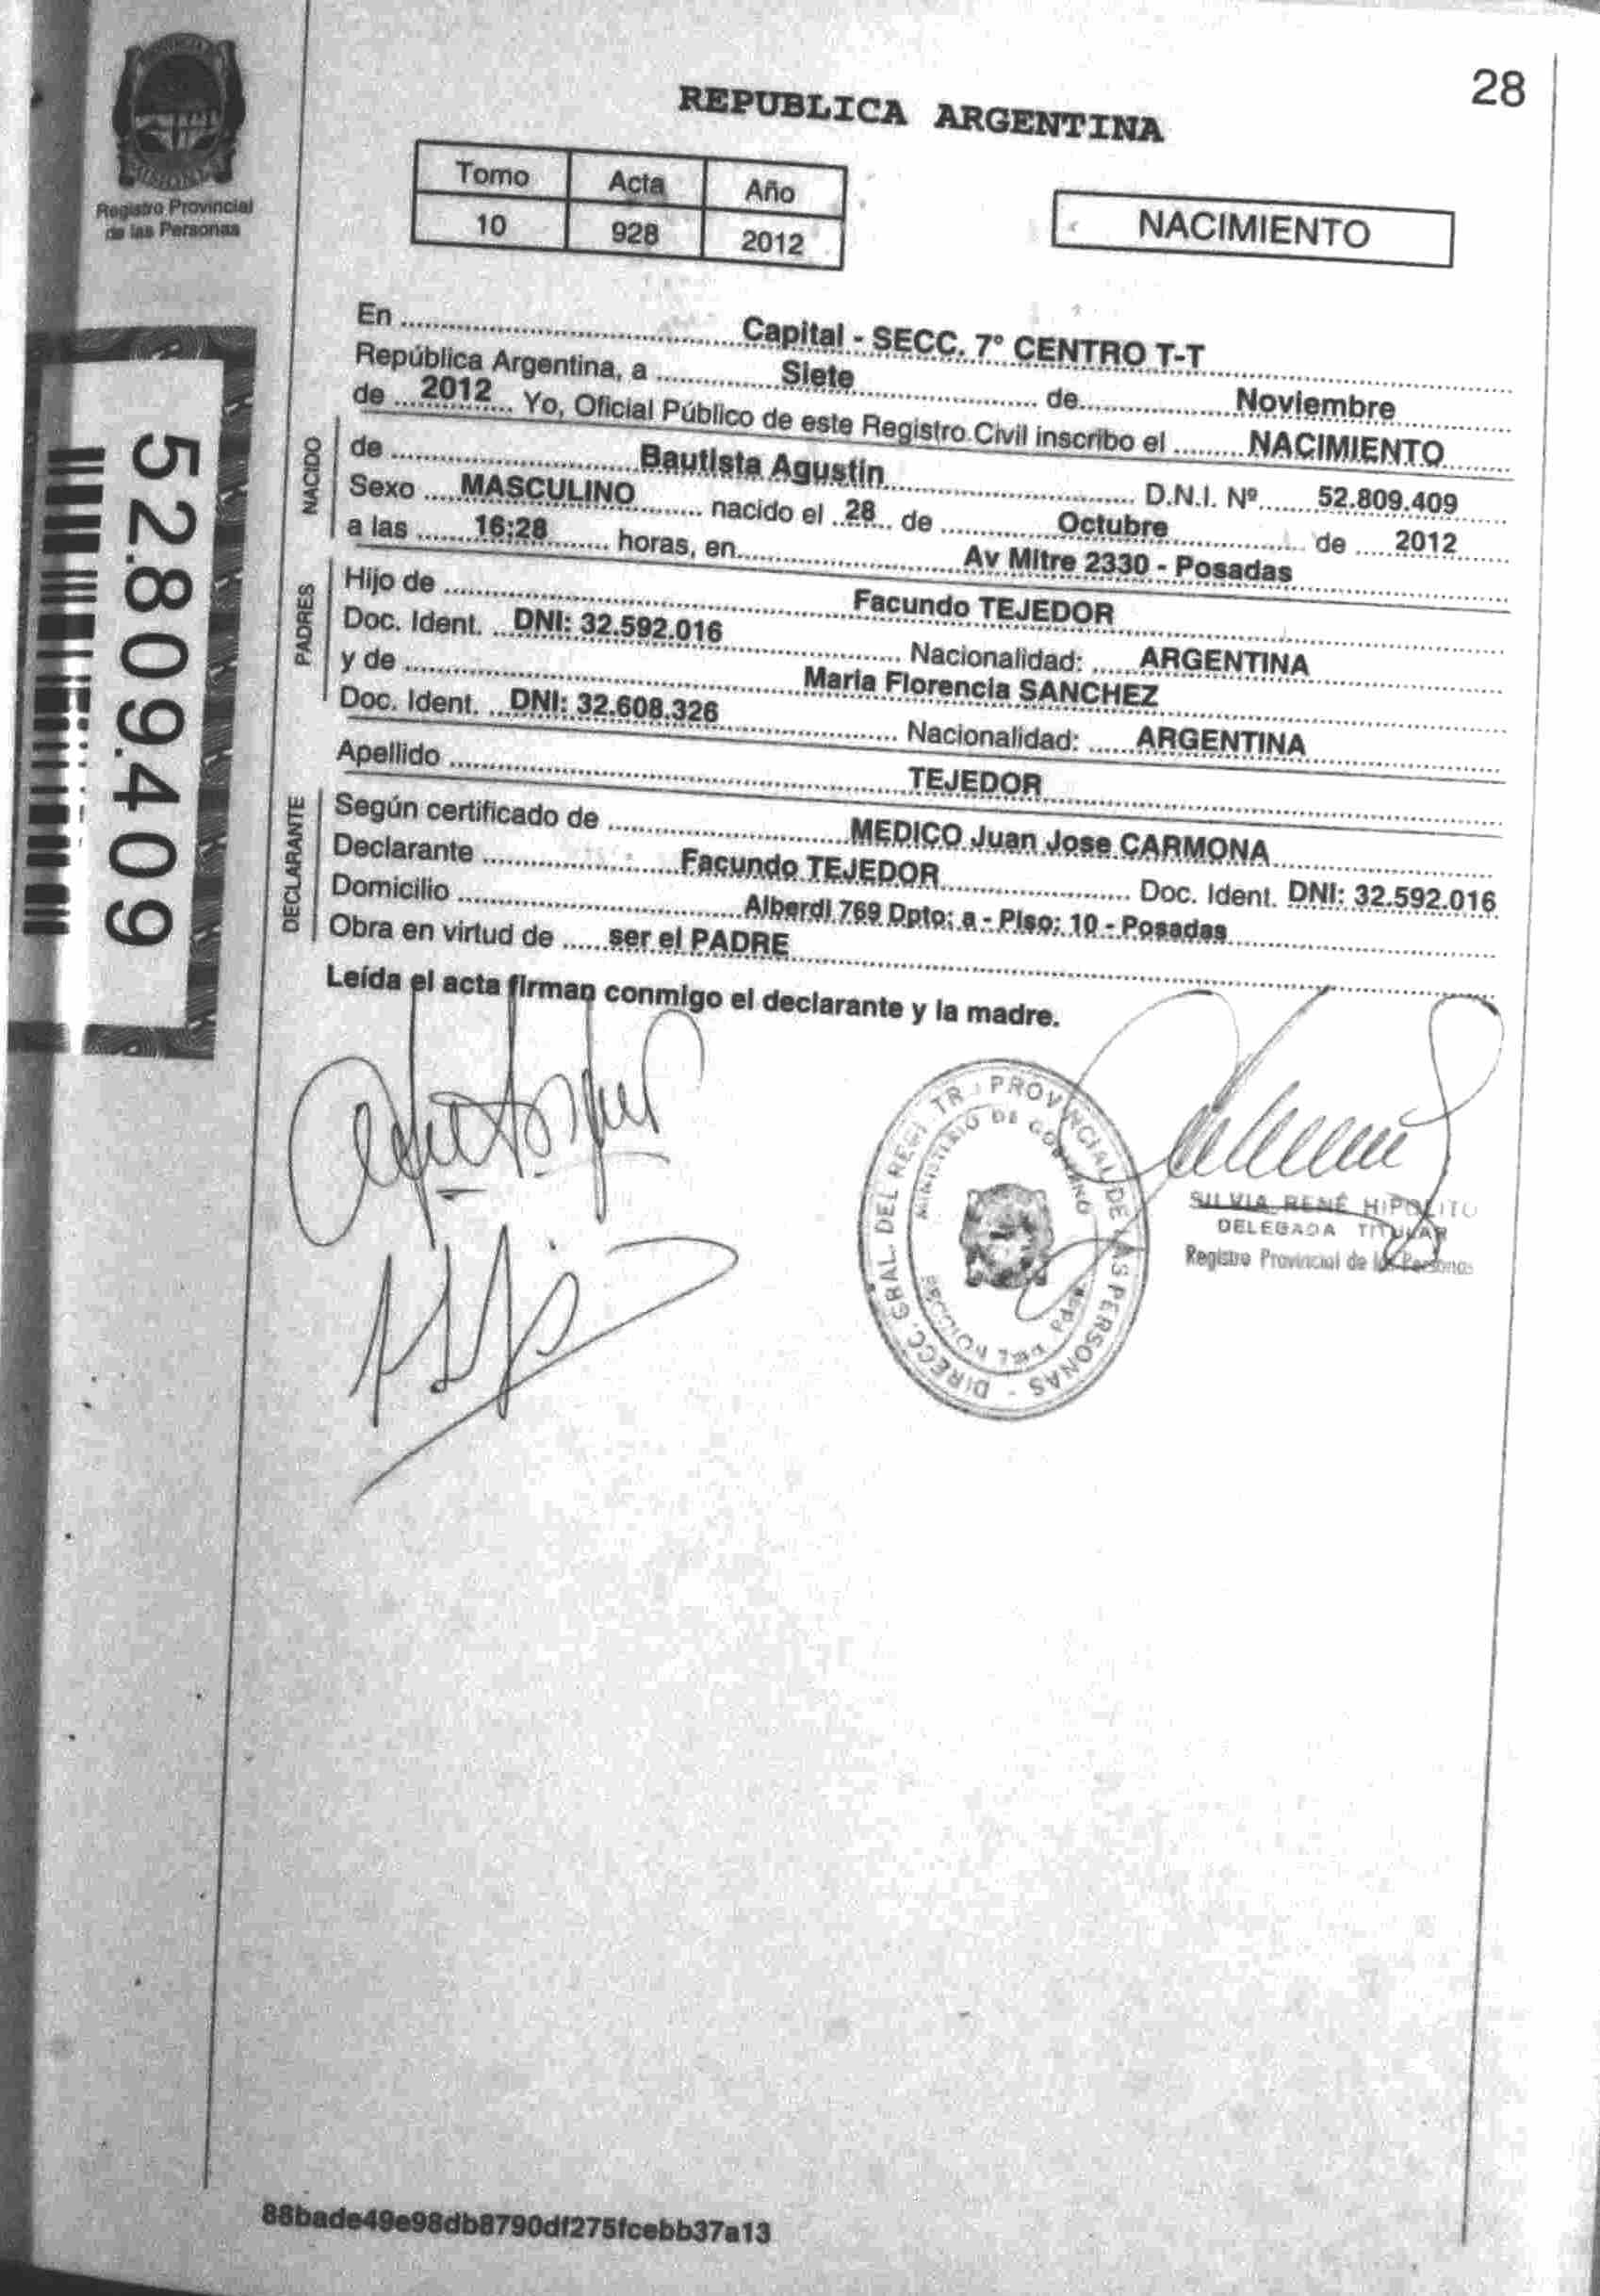 28
REPUBLICA ARGENTINA
MISIONES
Registro Provincial
de las Personas
Tomo Acta Año
10 928 2012
NACIMIENTO
52.809.409
En Capital - SECC. 7° CENTRO T-T
República Argentina, a Siete de Noviembre
de 2012 Yo, Oficial Público de este Registro Civil inscribo el NACIMIENTO
NACIDO
de Bautista Agustin D.N.I. Nº 52.809.409
Sexo MASCULINO nacido el 28 de Octubre de 2012
a las 16:28 horas, en Av Mitre 2330 - Posadas
PADRES
Hijo de Facundo TEJEDOR
Doc. Ident. DNI: 32.592.016 Nacionalidad: ARGENTINA
y de Maria Florencia SANCHEZ
Doc. Ident. DNI: 32.608.326 Nacionalidad: ARGENTINA
Apellido TEJEDOR
DECLARANTE
Según certificado de MEDICO Juan Jose CARMONA
Declarante Facundo TEJEDOR Doc. Ident. DNI: 32.592.016
Domicilio Alberdi 769 Dpto: a - Piso: 10 - Posadas
Obra en virtud de ser el PADRE
Leída el acta firman conmigo el declarante y la madre.
DIRECC. GRAL. DEL REGISTR PROVINCIAL DE LAS PERSONAS -
MINISTERIO DE GOBIERNO
SECCION 7ma
SILVIA RENÉ HIPOLITO
DELEGADA TITULAR
Registro Provincial de las Personas
88bade49e98db8790df275fcebb37a13